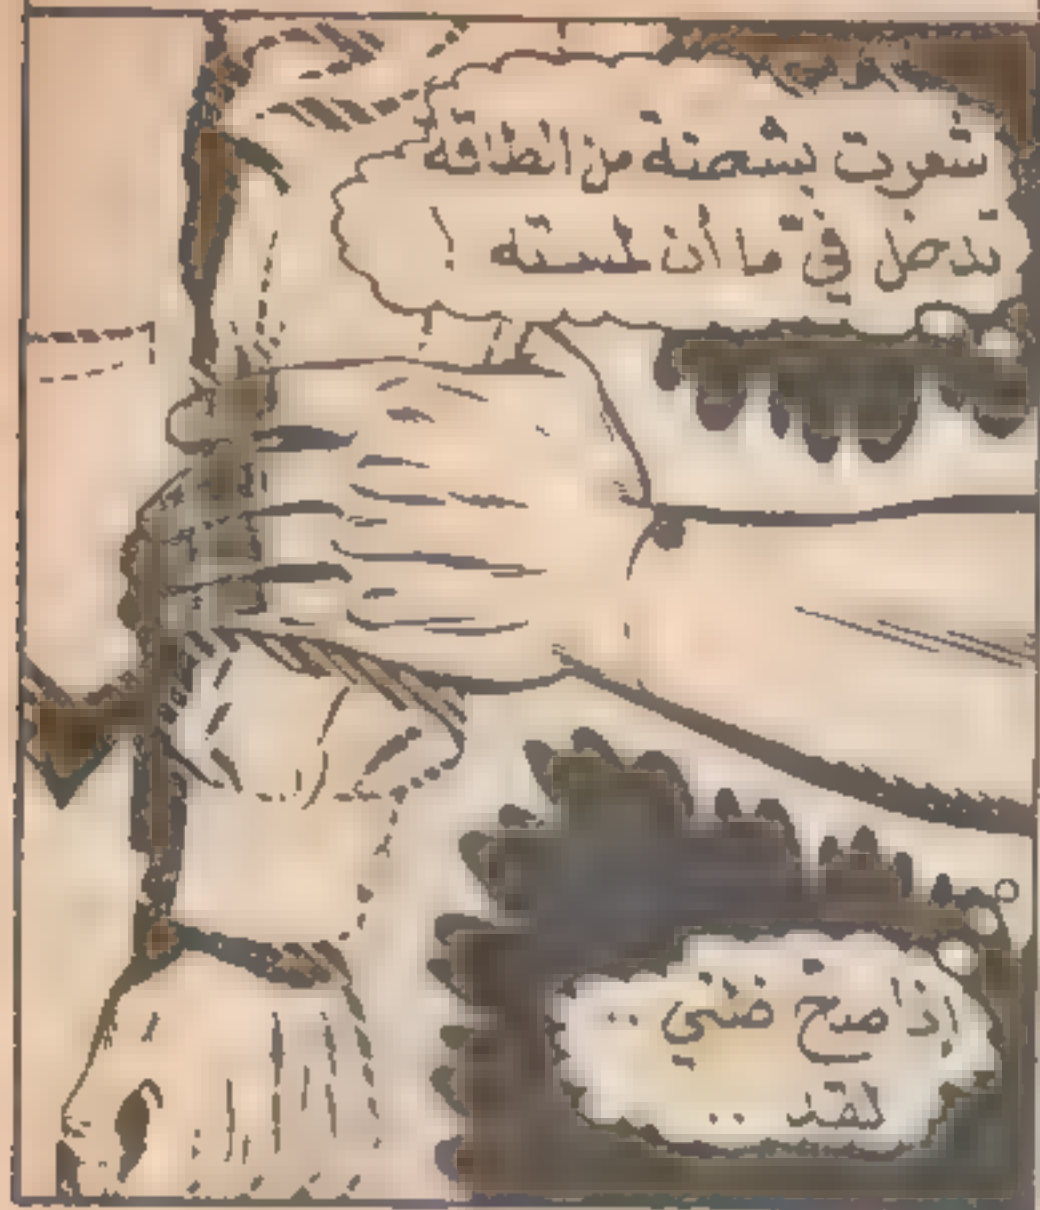 شعرت بشحنة من الطاقة
تدخل في ما أن لمسته !
إذا صح ضني ..
لقد ..